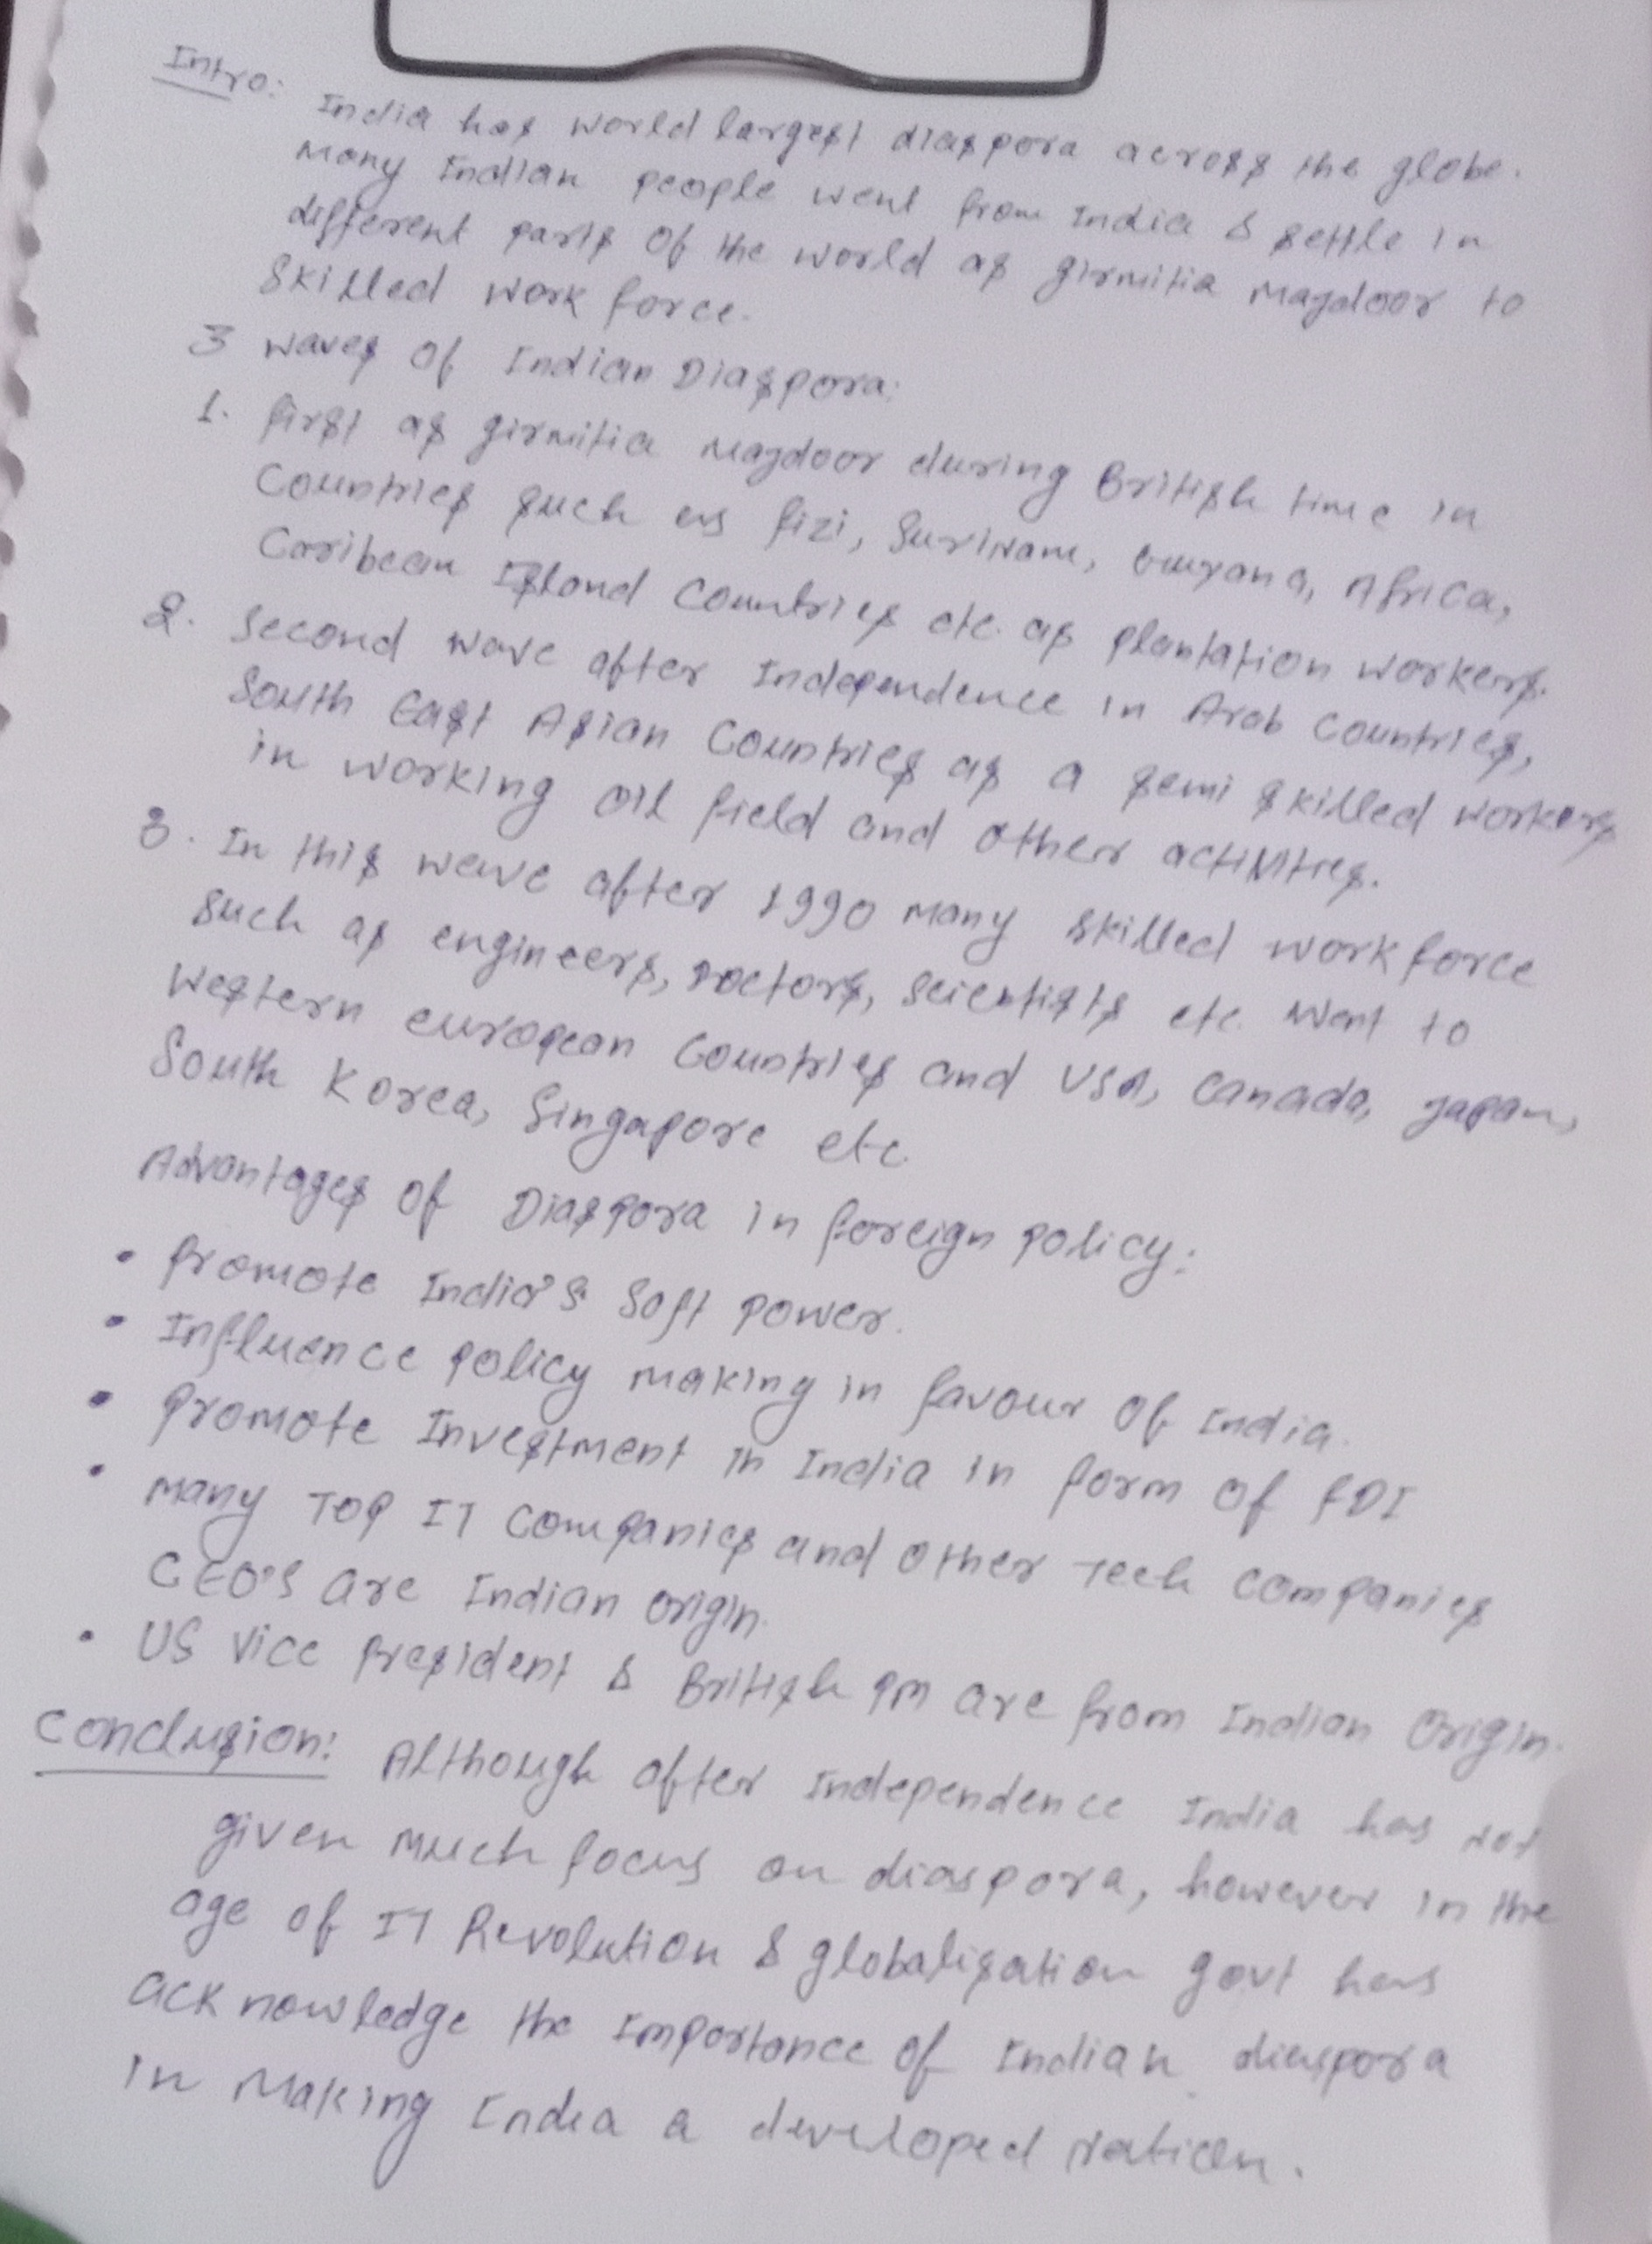 Intro:
India has world largest diaspora across the globe.
Many Indian people went from India & settle in
different parts of the world as girmitia Majdoor to
Skilled work force.
3 waves of Indian Diaspora:
1. first as girmitia Majdoor during British time in
Countries such as fizi, Surinam, Guyana, Africa,
Caribean Island Countries etc. as plantation workers.
2. Second wave after Independence in Arab Countries,
South East Asian Countries as a semi skilled workers
in working oil field and other activities.
3. In this wave after 1990 many skilled work force
such as engineers, Doctors, Scientists etc. went to
Western european Countries and USA, Canada, Japan,
South Korea, Singapore etc.
Advantages of Diaspora in foreign policy:
• Promote India's Soft power.
• Influence policy making in favour of India.
• Promote Investment in India in form of FDI
• Many Top IT Companies and other Tech companies
CEO's are Indian origin.
• US Vice President & British PM are from Indian Origin.
Conclusion: Although after Independence India has not
given much focus on diaspora, however in the
age of IT Revolution & globalisation govt has
acknowledge the Importance of Indian diaspora
in Making India a developed nation.